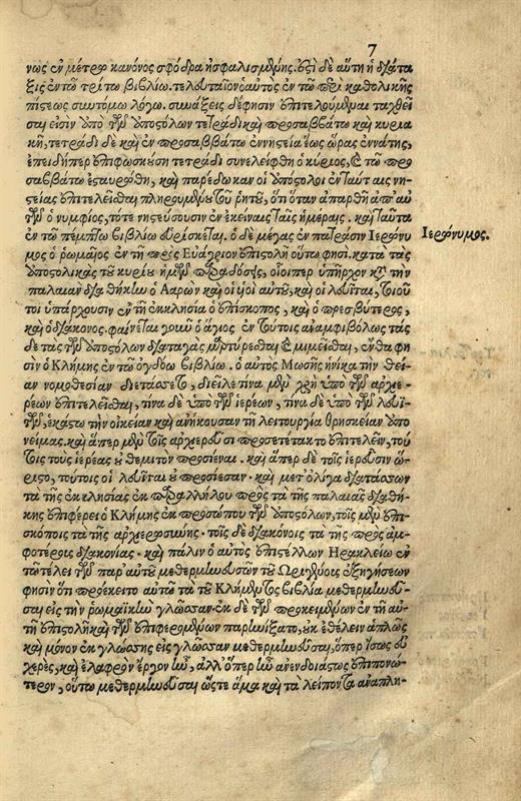 7
νως ἐν μέτρῳ κανόνος σφόδρα ἠσφαλισμένης. ἔστι δὲ αὕτη ἡ διάτα-
ξις ἐν τῷ τρίτῳ βιβλίῳ. τελευταῖον ἑαυτὸς ἐν τῷ περὶ καθολικῆς
πίστεως συντόμῳ λόγῳ. συνάξεις δέ φησιν ἐπιτελούμεναι ταχθεῖ-
σαί εἰσιν ὑπὸ τῶν ἀποστόλων τετράδι καὶ προσαββάτῳ καὶ κυρια-
κῇ, τετράδι δὲ καὶ ἐν προσαββάτῳ ἐν νηστείᾳ ἕως ὥρας ἐννάτης,
ἐπειδήπερ ἐπιφωσκούσῃ τετράδι συνελείφθη ὁ κύριος, καὶ τῷ προ
σαββάτῳ ἐσταυρώθη, καὶ παρέδωκαν οἱ ἀπόστολοι ἐν ταύταις νη-
στείας ἐπιτελεῖσθαι, πληρουμένου τοῦ ῥητοῦ, ὅτι ὅταν ἀπαρθῇ ἀπ αὐ
τῶν ὁ νυμφίος, τότε νηστεύσουσιν ἐν ἐκείναις ταῖς ἡμέραις. καὶ ταῦτα
ἐν τῷ πέμπτῳ βιβλίῳ εὑρίσκεται. ὁ δὲ μέγας ἐν πατράσιν Ἱερώνυ
Ἱερώνυμος.
μος ὁ ῥωμαῖος ἐν τῇ πρὸς Εὐάγριον ἐπιστολῇ οὕτω φησί. κατὰ τὰς
ἀποστολικὰς τοῦ κυρίου ἡμῶν παραδόσεις, οἷοιπερ ὑπῆρχον κατὰ τὴν
παλαιὰν διαθήκην ὁ Ἀαρὼν καὶ οἱ υἱοὶ αὐτοῦ, καὶ οἱ λευῖται, τοιοῦ
τοι ὑπάρχουσιν ἐν τῇ ἐκκλησίᾳ ὁ ἐπίσκοπος, καὶ ὁ πρεσβύτερος,
καὶ ὁ διάκονος. φαίνεται γοῦν ὁ ἅγιος ἐν τούτοις ἀναμφιβόλως τὰς
δὲ τὰς τῶν ἀποστόλων διαταγὰς μαρτύρεσθαι καὶ μιμεῖσθαι, ἔνθα φη
σὶν ὁ Κλήμης ἐν τῷ ὀγδόῳ βιβλίῳ. ὁ αὐτὸς Μωσῆς ἡνίκα τὴν θεί-
αν νομοθεσίαν διετάσσετο, διεῖλε τίνα μὲν χρὴ ὑπὸ τῶν ἀρχιε-
ρέων ἐπιτελεῖσθαι, τίνα δὲ ὑπὸ τῶν ἱερέων, τίνα δὲ ὑπὸ τῶν λευϊ-
τῶν, ἑκάστῳ τὴν οἰκείαν καὶ ἀνήκουσαν τῇ λειτουργίᾳ θρησκείαν ἀπο
νείμας. καὶ ἅπερ μὲν τοῖς ἀρχιερεῦσι προσετέτακτο ἐπιτελεῖν, τού
τοις τοὺς ἱερέας οὐ θεμιτὸν προσιέναι. καὶ ἅπερ δὲ τοῖς ἱερεῦσιν ὥ-
ριστο, τούτοις οἱ λευῖται οὐ προσίεσαν. καὶ μετ ὀλίγα διατάσσων
τὰ τῆς ἐκκλησίας ἐκ παραλλήλου πρὸς τὰ τῆς παλαιᾶς διαθή-
κης ἐπιφέρει ὁ Κλήμης ἐκ προσώπου τῶν ἀποστόλων, τοῖς μὲν ἐπι-
σκόποις τὰ τῆς ἀρχιερωσύνης. τοῖς δὲ διακόνοις τὰ τῆς πρὸς ἀμ-
φοτέροις διακονίας. καὶ πάλιν ὁ αὐτὸς ἐπιστέλλων Ἡρακλείῳ ἐν
τῷ τέλει τῶν παρ' αὐτοῦ μεθερμηνευσῶν τοῦ Ὠριγένους ἐξηγήσεων
φησὶν ὅτι προέκειτο αὐτῷ τὰ τοῦ Κλήμεντος βιβλία μεθερμηνεῦ-
σαι εἰς τὴν ῥωμαϊκὴν γλῶσσαν. ἐκ δὲ τῶν προκειμένων ἐν τῇ αὐ-
τῇ ἐπιστολῇ καὶ τῶν ἐπιφερομένων παρῃνίξατο, οὐκ ἐθέλειν ἁπλῶς
καὶ μόνον ἐκ γλώσσης εἰς γλῶσσαν μεθερμηνεῦσαι, ὅπερ ἴσως εὐ
χερὲς, καὶ ἐλαφρὸν ἔργον ἦν, ἀλλ' ὅπερ ἦν ἀνενδοιάστως ἐπιπονώ-
τερον, οὕτω μεθερμηνεῦσαι ὥστε ἅμα καὶ τὰ λείποντα ἀναπλη-